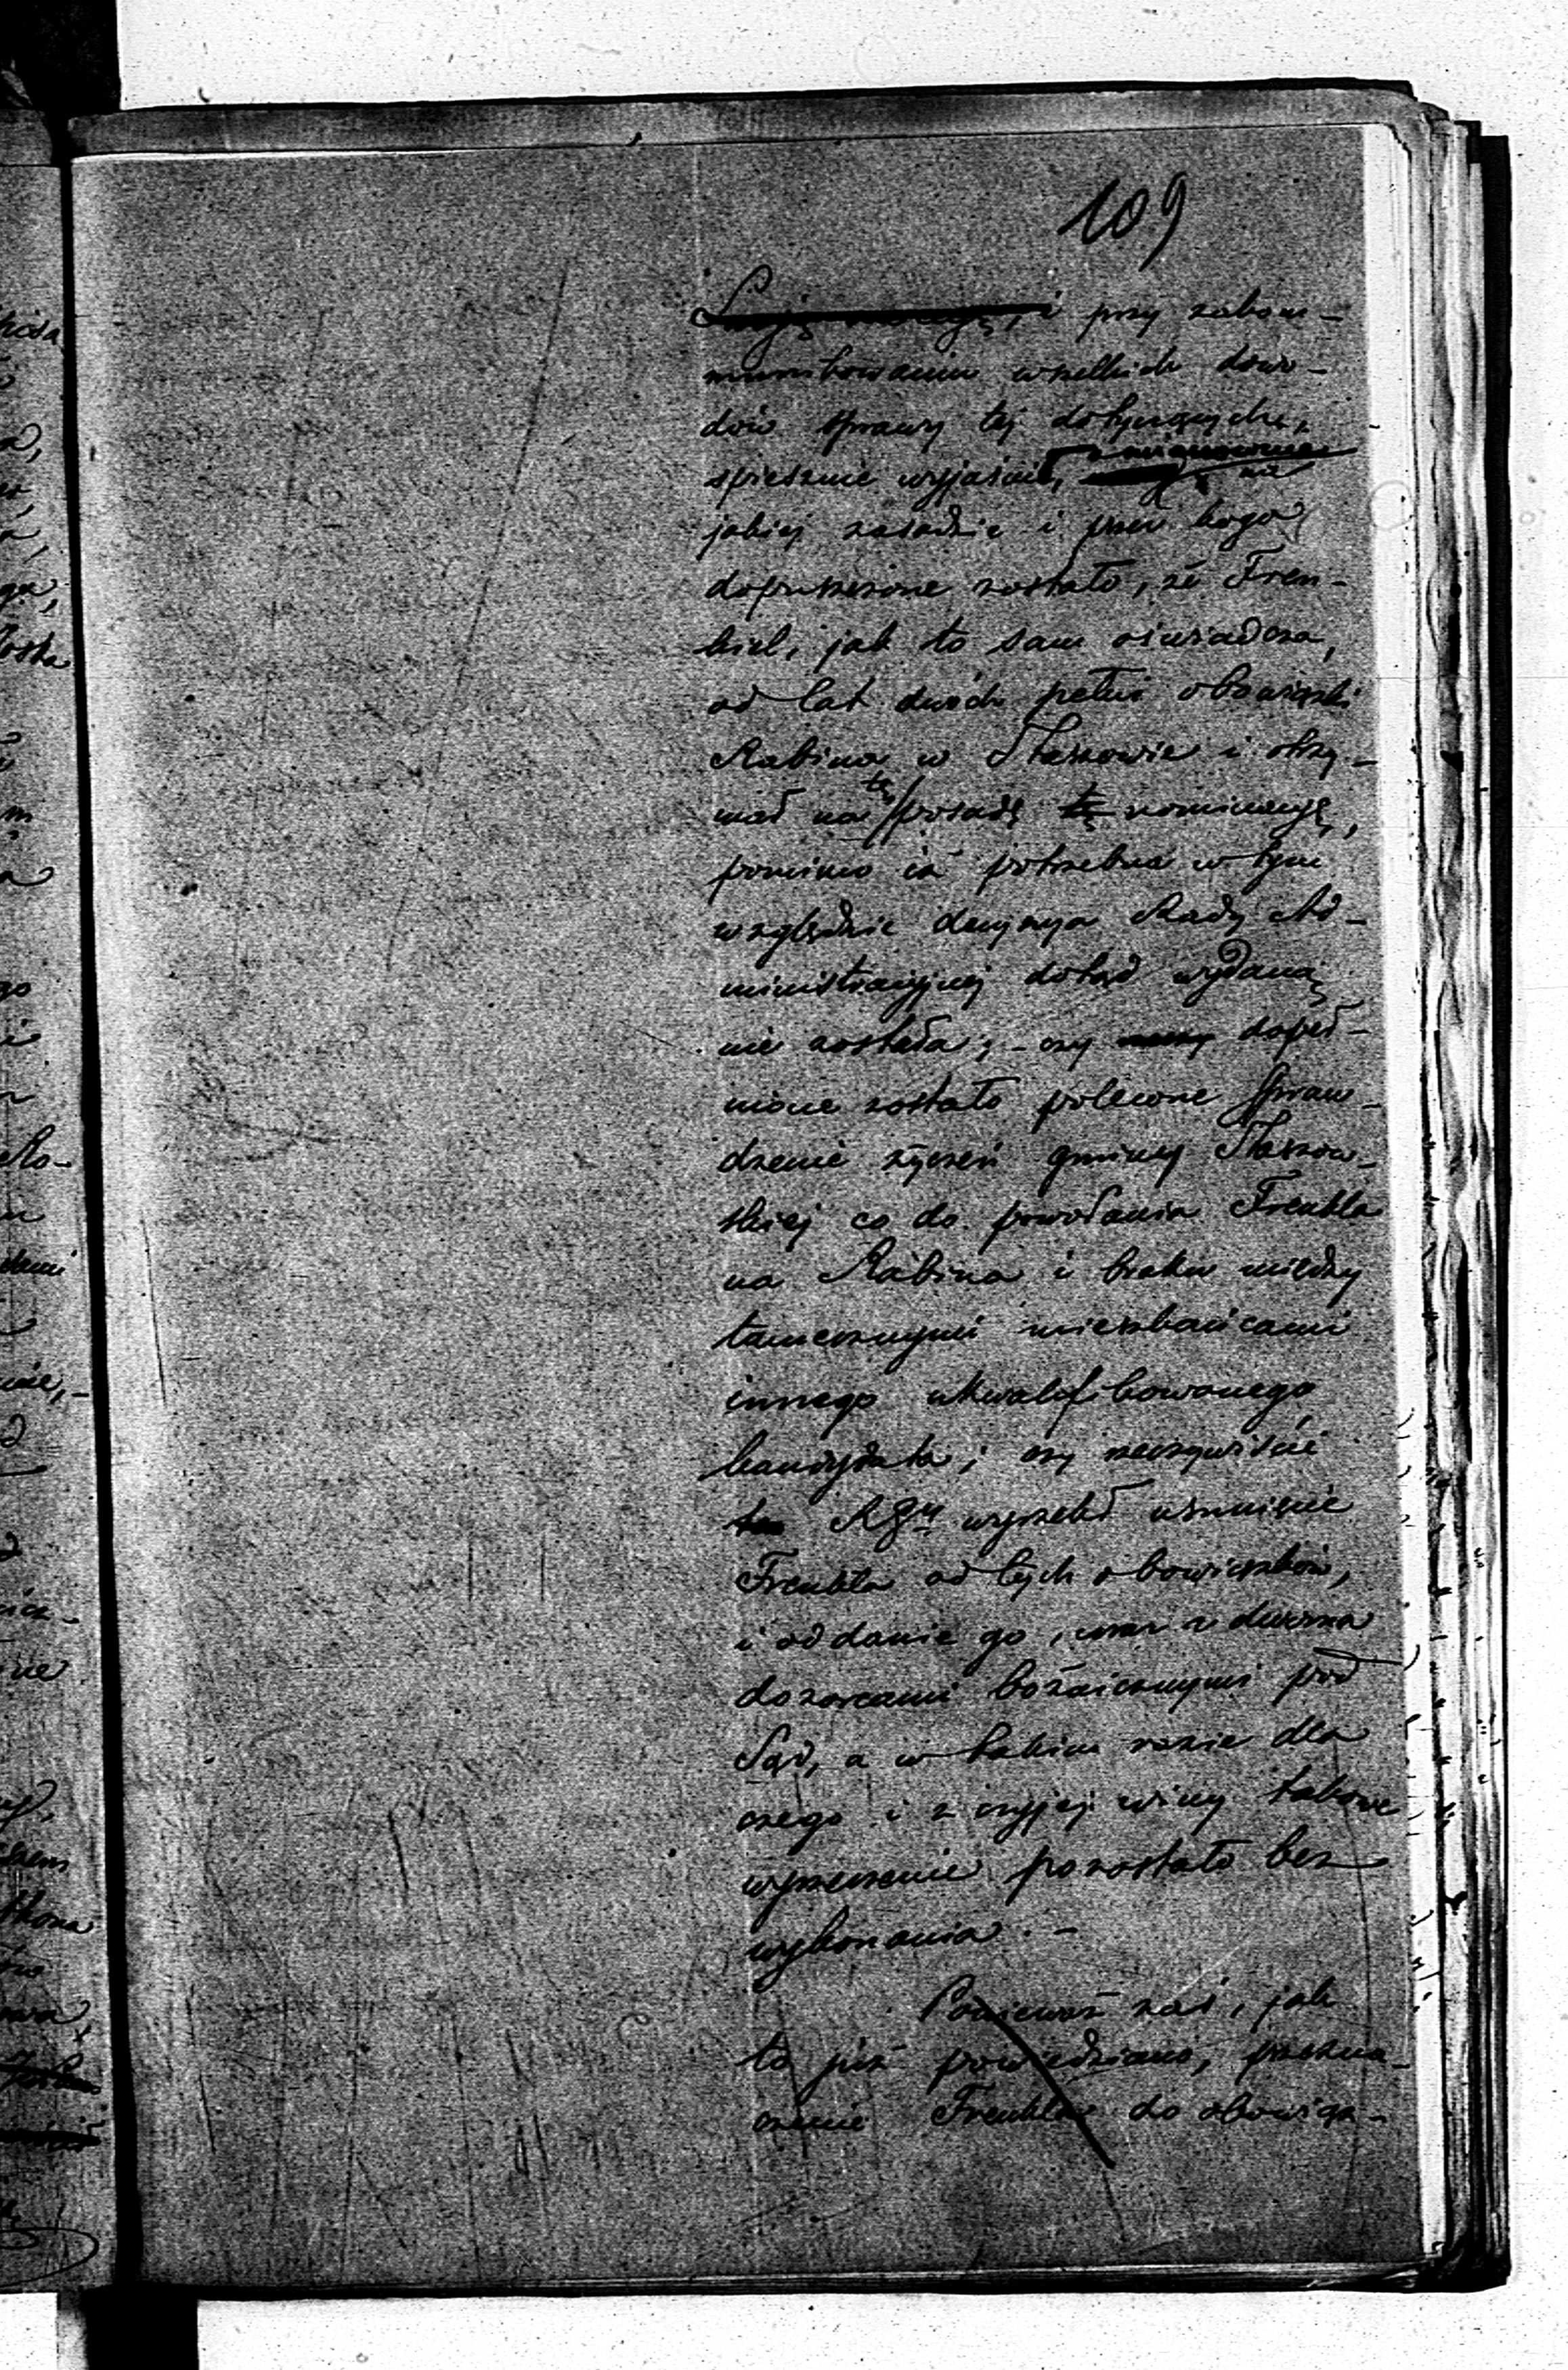 109
i przy zakom-
munikowaniu wszelkich dowo-
dów sprawy tej dotyczących,
spiesznie wyjaśnił, a mianowicie na
jakiej zasadzie i przez kogo
dopuszczone zostało, że Fren-
kiel, jak to sam oświadcza,
od lat dwóch pełni obowiązki
Rabina w Staszowie i otrzy-
mał na tę posadę tę nominacyę,
pomimo iż potrzebna w tym
względzie decyzya Rady Ad-
ministracyjnej dotąd wydaną
nie została; - czy dopeł-
nione zostało polecone spraw-
dzenie życzeń gminy Staszow-
skiej co do powołania Frenkla
na Rabina i braku między
tamecznymi mieszkańcami
innego ukwalifikowanego
kandydata; czy rzeczywiście
RGu wyrzekł usunięcie
Frenkla od tych obowiązków,
i oddanie go, wraz z dwoma
dozorcami bóżnicznymi pod
Sąd, a w takim razie dla
czego i z czyjej winy takowe
wyrzeczenie pozostało bez
wykonania. -
Ponieważ zaś, jak
to już powiedziano, przezna-
czenie Frenkla do obowiąz-